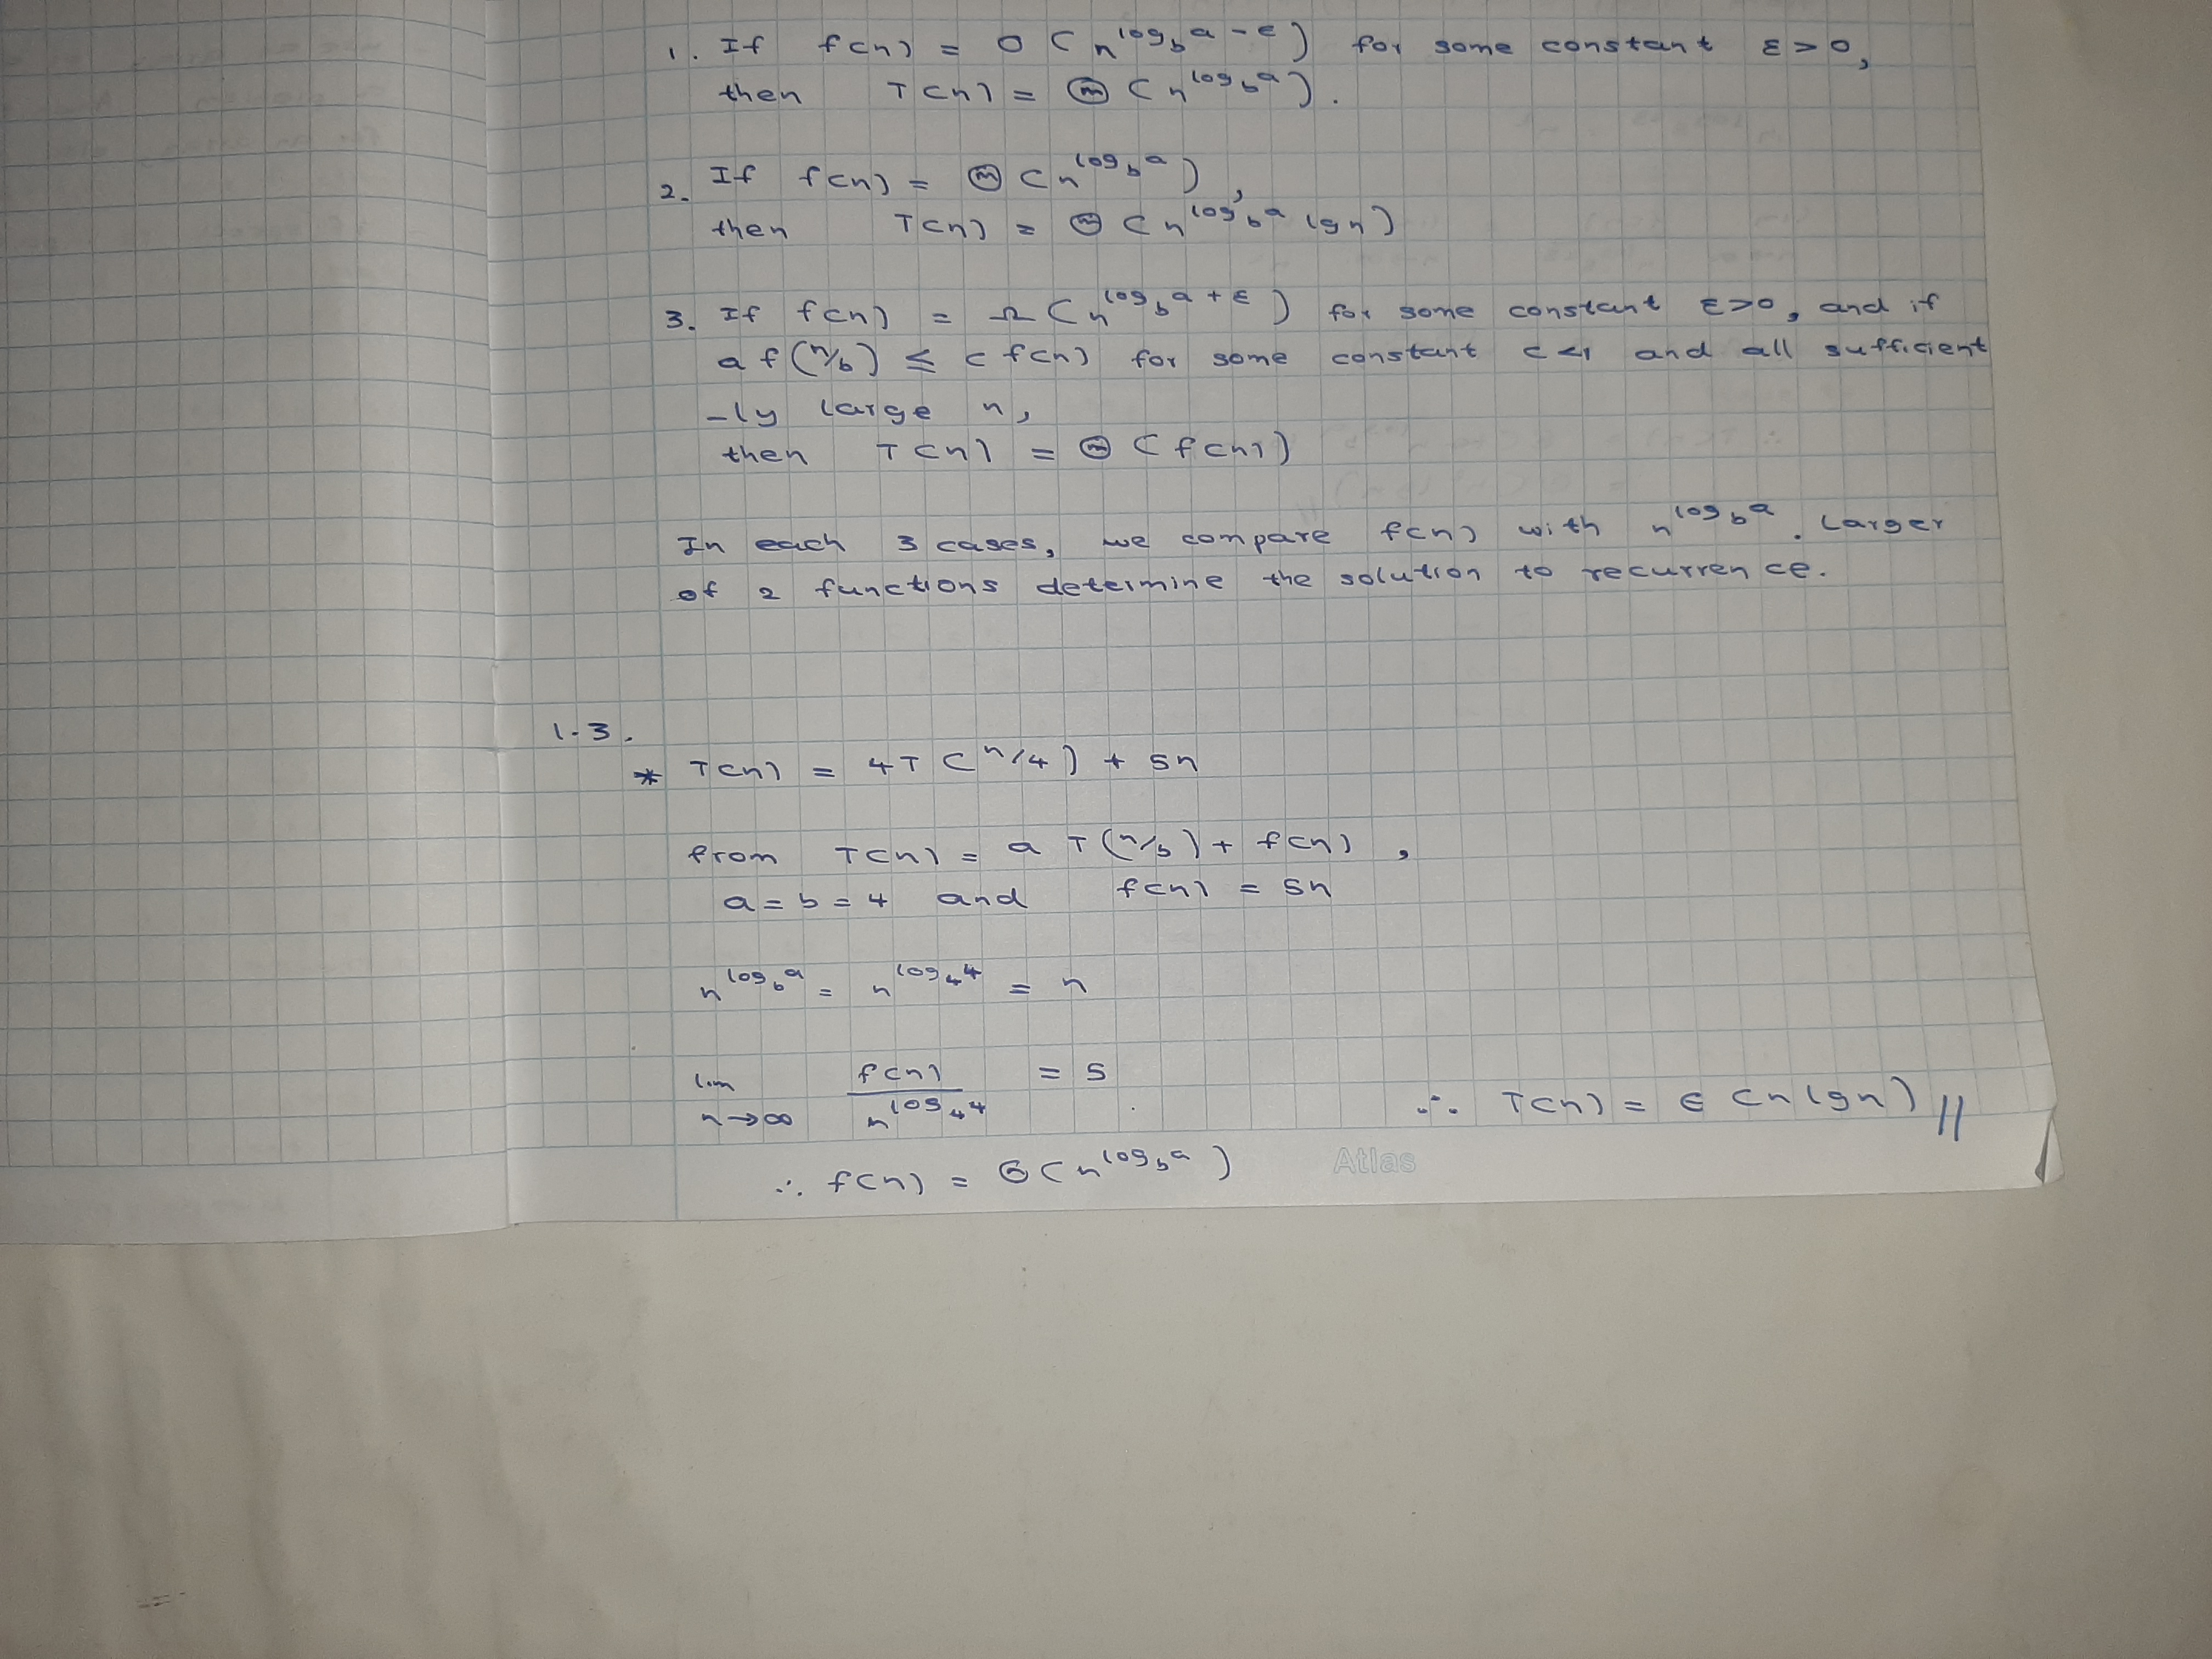 1. If f(n) = O(n^log_b a-ε) for some constant ε>0,
then T(n) = Θ(n^log_b a).
2. If f(n) = Θ(n^log_b a)
then T(n) = Θ(n^log_b a lgn)
3. If f(n) = Ω(n^log_b a+ε) for some constant ε>0, and if
a f(n/b) ≤ c f(n) for some constant c<1 and all sufficient
-ly large n,
then T(n) = Θ(f(n))
In each 3 cases, we compare f(n) with n^log_b a. Larger
of 2 functions determine the solution to recurrence.
1.3.
* T(n) = 4T(n/4) + 5n
from T(n) = a T(n/b) + f(n),
a = b = 4 and f(n) = 5n
n^log_b a = n^log_4 4 = n
lim n→∞ f(n)/n^log_4 4 = 5
∴ f(n) = Θ(n^log_b a) ∴ T(n) = Θ(n lgn)
Atlas